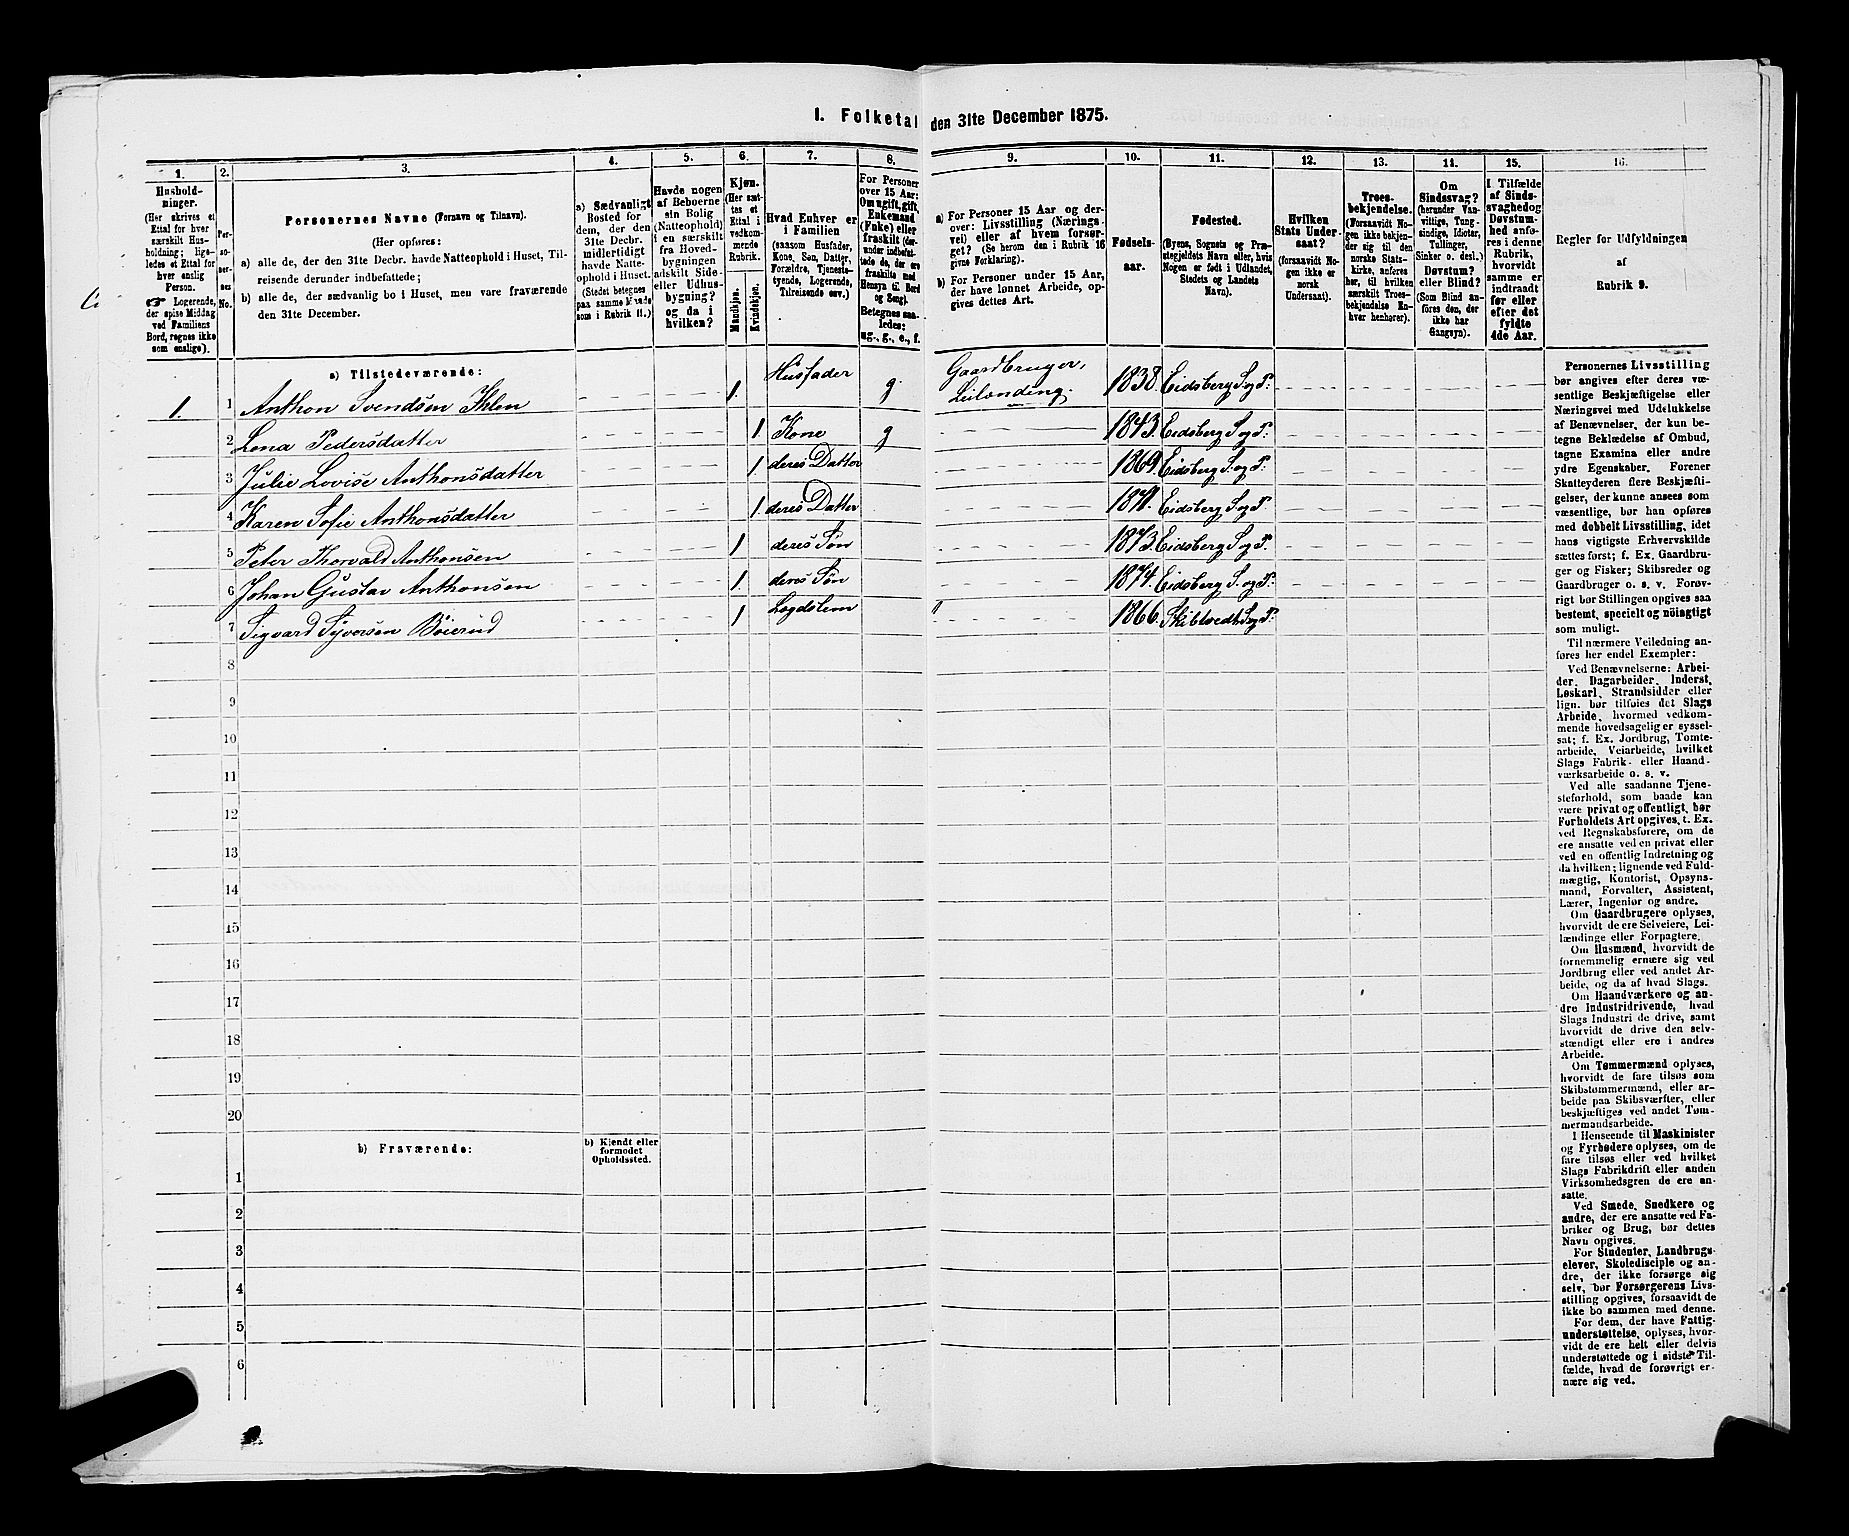 1. Folketal den 31te December 1875.
1.
Hushold-
ninger.
(Her skrives et
Ettal for hver
særskilt Hus-
holdning; lige-
ledes et Ettal for
hver enslig
Person.
☞ Logerende,
der spise Middag
ved Familiens
Bord, regnes ikke
som enslige).
2.
Per-
so-
ner-
nes
No.
3.
Personernes Navne (Fornavn og Tilnavn).
(Her opføres:
a) alle de, der den 31te Decbr. havde Natteophold i Huset, Til-
reisende derunder indbefattede;
b) alle de, der sædvanlig bo i Huset, men vare fraværende
den 31te December.
4.
a) Sædvanligt
Bosted for
dem, der den
31te Decbr.
midlertidigt
havde Natte-
ophold i Huset.
(Stedet betegnes
paa samme Maade
som i Rubrik 11.)
5.
Havde nogen
af Beboerne
sin Bolig
(Natteophold)
i en særskilt
fra Hoved-
bygningen
adskilt Side-
eller Udhus-
bygning?
og da i
hvilken?
6.
Kjøn.
(Her sæt-
tes et
Ettal i
vedkom-
mende
Rubrik.
Mandkjøn.
Kvindekjøn.
7.
Hvad Enhver er
i Familien
(saasom Husfader,
Kone, Søn, Datter,
Forældre, Tjeneste-
tyende, Logerende,
Tilreisende osv.)
8.
For Personer
over 15 Aar:
Om ugift, gift,
Enkemand
(Enke) eller
fraskilt (der-
under indbefat-
tede de, der ere
fraskilte med
Hensyn til Bord
og Seng).
Betegnes saa-
ledes:
ug., g., e., f.
9.
a) For Personer 15 Aar og der-
over: Livsstilling (Nærings-
vei) eller af hvem forsør-
get? (Se herom den i Rubrik 16
givne Forklaring).
b) For Personer under 15 Aar,
der have lønnet Arbeide, op-
gives dettes Art.
10.
Fødsels-
aar.
11.
Fødested.
(Byens, Sognets og Præ-
stegjeldets Navn eller, hvis
Nogen er født i Udlandet,
Stedets og Landets
Navn).
12.
Hvilken
Stats Under-
saat?
(forsaavidt No-
gen ikke er
norsk
Undersaat).
13.
Troes-
bekjendelse.
(Forsaavidt No-
gen ikke bekjen-
der sig til den
norske Stats-
kirke, anføres
her, til hvilken
særskilt Troes-
bekjendelse En-
hver henhører).
14.
Om
Sindssvag?
(herunder Van-
vittige, Tung-
sindige, Idioter,
Tullinger,
Sinker o. desl.)
Døvstum?
eller Blind?
(Som Blind an-
føres den, der
ikke har
Gangsyn).
15.
I Tilfælde
af Sinds-
svaghed og
Døvstum-
hed anfø-
res i denne
Rubrik,
hvorvidt
samme er
indtraadt
før eller
efter det
fyldte
4de Aar.
16.
Regler for Udfyldningen
af
Rubrik 9.
a) Tilstedeværende:
1. 1 Anthon Svendsen Ihlen 1. Husfader g. Gaardbruger, Leilænding. 1838 Eidsberg S. og P.
2 Lena Pedersdatter 1 Kone g 1843. Eidsberg S. og P.
3 Julie Lovise Anthonsdatter 1. deres Datter 1869. Eidsberg S. og P.
4 Karen Sofie Anthonsdatter 1. deres Datter 1871. Eidsberg S. og P.
5 Peter Thorvald Anthonsen 1 deres Søn 1873. Eidsberg S. og P.
6 Johan Gustav Anthonsen 1. deres Søn 1874. Eidsberg S. og P.
7 Sigvard Syversen Böierud 1 Lægdslem " 1866. Skibtvedt S. og P.
8
9
10
11
12
13
14
15
16
17
18
19
20
b) Fraværende:
b) Kjendt eller
formodet
Opholdssted.
1
2
3
4
5
6
Personernes Livsstilling
bør angives efter deres væ-
sentlige Beskjæftigelse eller
Næringsvei med Udelukkelse
af Benævnelser, der kun be-
tegne Beklædelse af Ombud,
tagne Examina eller andre
ydre Egenskaber. Forener
Skatteyderen flere Beskjæfti-
gelser, der kunne ansees som
væsentlige, bør han opføres
med dobbelt Livsstilling, idet
hans vigtigste Erhvervskilde
sættes først; f. Ex. Gaardbru-
ger og Fisker; Skibsreder og
Gaardbruger o. s. v. Forøv-
rigt bør Stillingen opgives saa
bestemt, specielt og nöiagtigt
som muligt.
Til nærmere Veiledning an-
føres her endel Exempler:
Ved Benævnelserne: Arbei-
der, Dagarbeider, Inderst,
Løskarl, Strandsidder eller
lign. bør tilføies det Slags
Arbeide, hvormed vedkom-
mende hovedsagelig er syssel-
sat; f. Ex. Jordbrug, Tomte-
arbeide, Veiarbeide, hvilket
Slags Fabrik- eller Haand-
værksarbeide o. s. v.
Ved alle saadanne Tjene-
steforhold, som baade kan
være privat og offentligt, bør
Forholdets Art opgives, t. Ex.
ved Regnskabsførere, om de
ere ansatte ved en privat eller
ved en offentlig Indretning og
da hvilken; lignende ved Fuld-
mægtig, Kontorist, Opsyns-
mand, Forvalter, Assistent,
Lærer, Ingeniør og andre.
Om Gaardbrugere oplyses,
hvorvidt de ere Selveiere, Lei-
lændinge eller Forpagtere.
Om Husmænd, hvorvidt de
fornemmelig ernære sig ved
Jordbrug eller ved andet Ar-
beide, og da af hvad Slags.
Om Haandværkere og an-
dre Industridrivende, hvad
Slags Industri de drive, samt
hvorvidt de drive den selv-
stændigt eller ere i andres
Arbeide.
Om Tømmermænd oplyses,
hvorvidt de fare tilsøs som
Skibstømmermænd, eller ar-
beide paa Skibsværfter, eller
beskjæftiges ved andet Tøm-
mermandsarbeide.
I Henseende til Maskinister
og Fyrbødere oplyses, om de
fare tilsøs eller ved hvilket
Slags Fabrikdrift eller anden
Virksomhedsgren de ere an-
satte.
Ved Smede, Snedkere og
andre, der ere ansatte ved Fa-
briker og Brug, bør dettes
Navn opgives.
For Studenter, Landbrugs-
elever, Skoledisciple og an-
dre, der ikke forsørge sig
selv, bør Forsørgerens Livs-
stilling opgives, forsaavidt de
ikke bo sammen med denne.
For dem, der have Fattig-
understøttelse, oplyses, hvor-
vidt de ere helt eller delvis
understøttede og i sidste Til-
fælde, hvad de forøvrigt er-
nære sig ved.